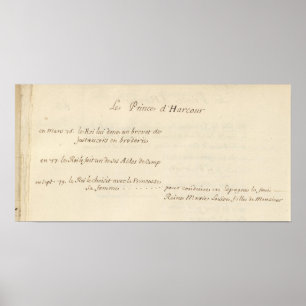 Le Prince d'Harcour
en Mars 75. le Roi lui donne un brevet de
Justaucorps en broderies
en 77. le Roi le fait un de ses Aides de Camp
en Sept. 79. le Roi le choisit avec la Princesse
sa femme . . . . . . . . pour conduire en Espagne la
Reine Marie Louise, fille de Monsieur